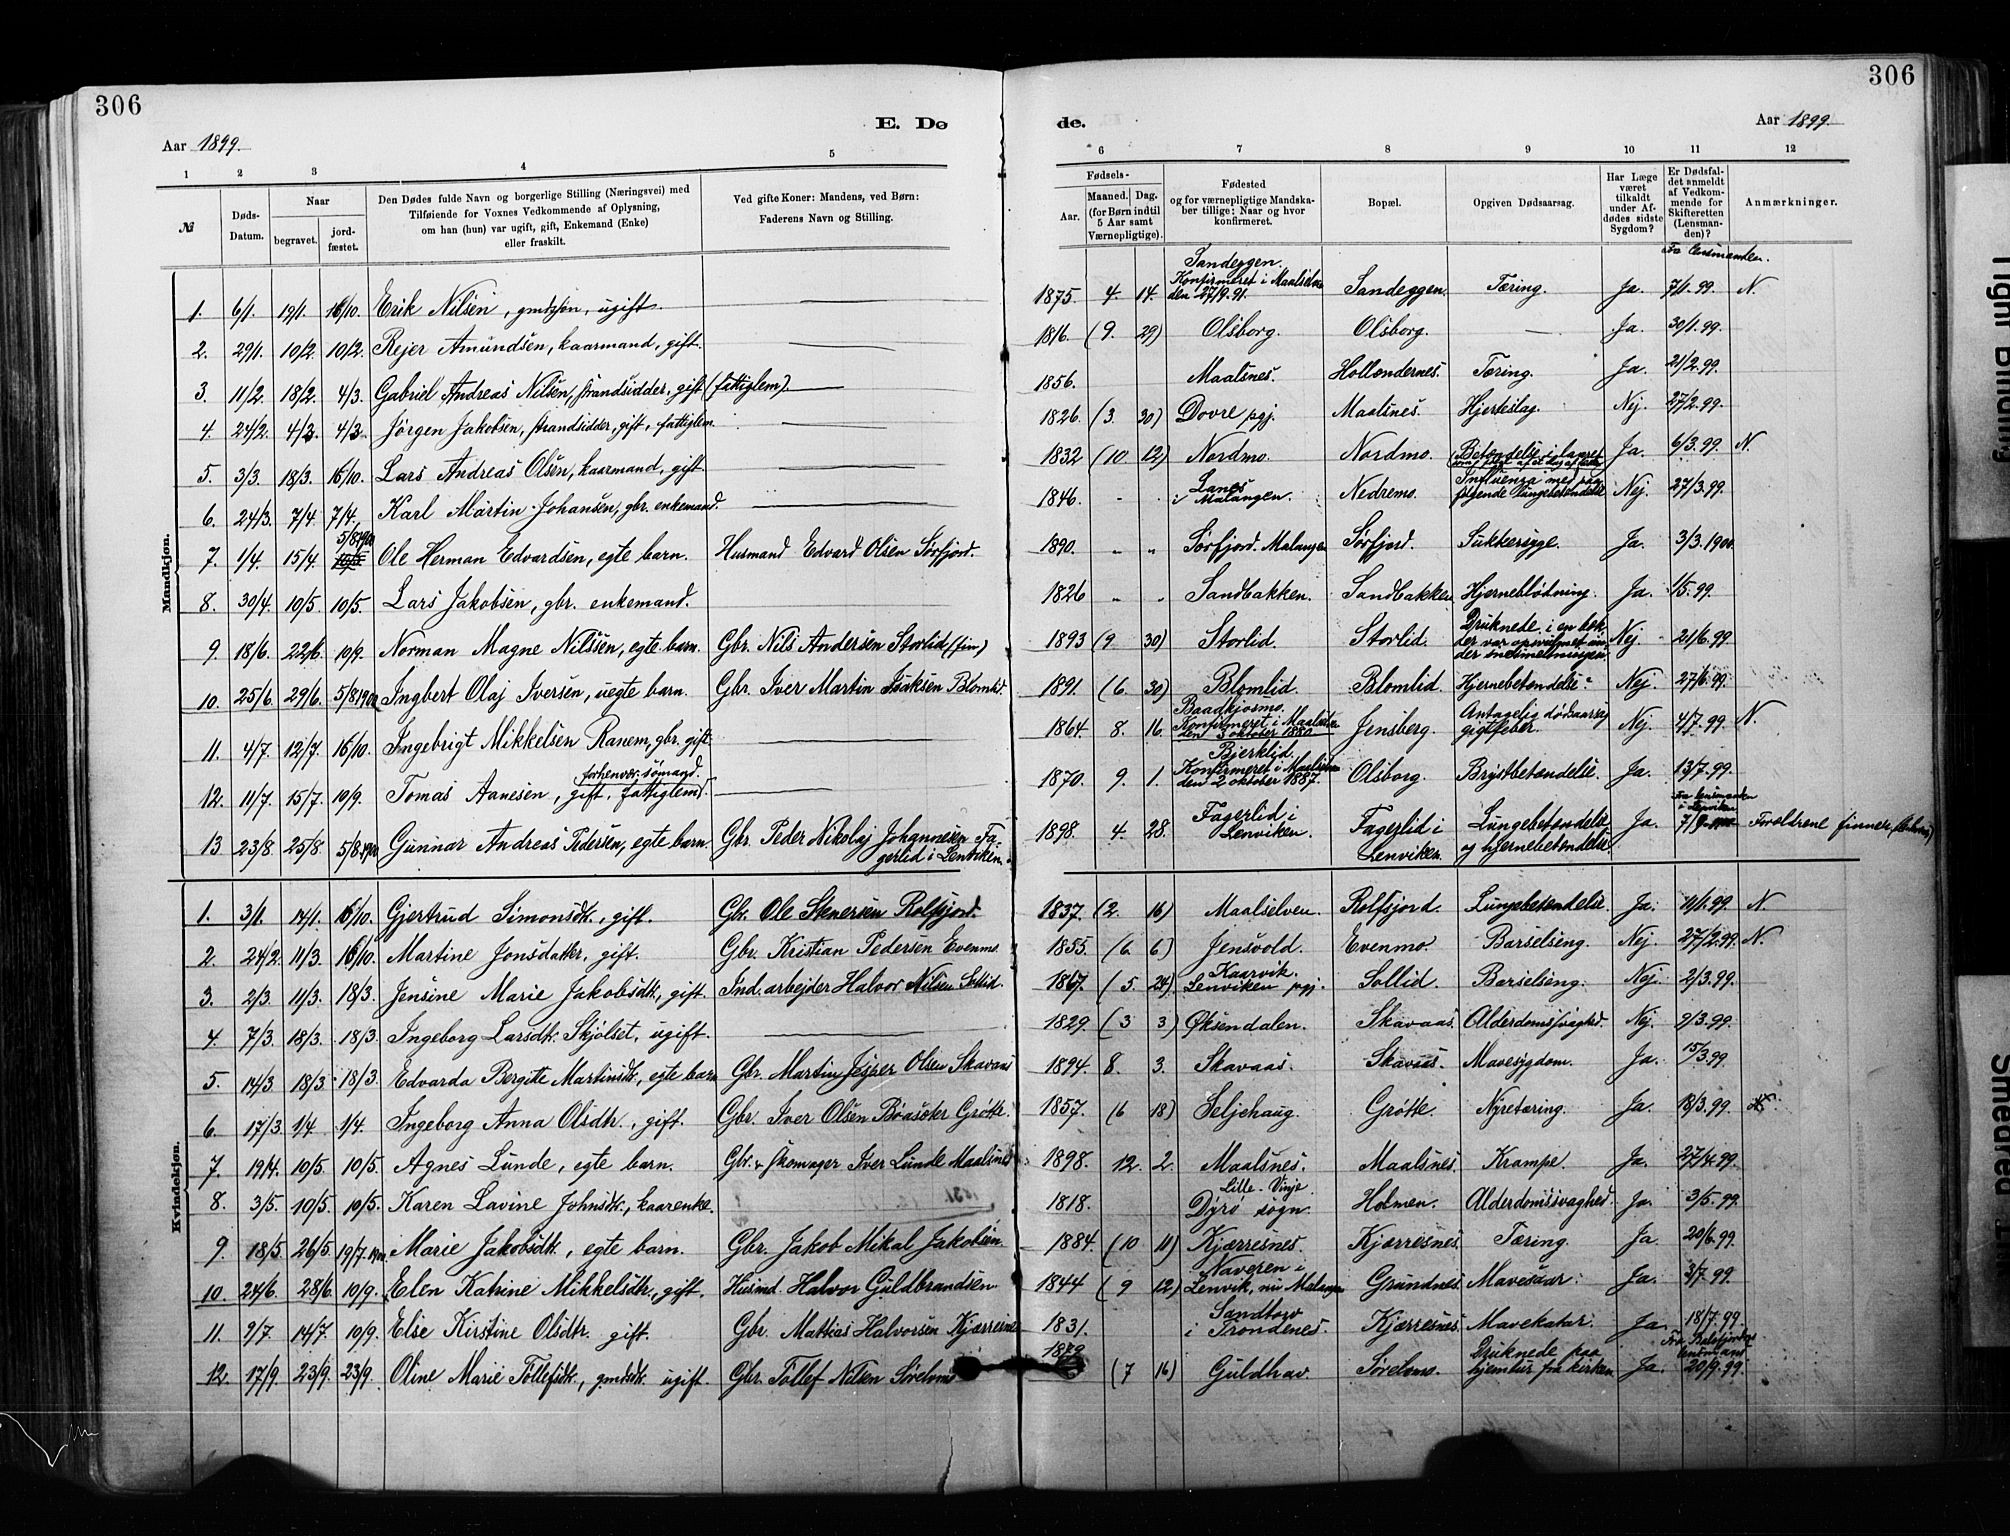 306
306
E. Dø
de.
Aar 1899.
Aar 1899.
1 2 3 4 5
6 7 8 9 10 11 12
№
Døds-Datum.
Naar
begravet.
jord-fæstet.
Den Dødes fulde Navn og borgerlige Stilling (Næringsvei) med
Tilføiende for Voxnes Vedkommende af Oplysning,
om han (hun) var ugift, gift, Enkemand (Enke)
eller fraskilt.
Ved gifte Koner: Mandens, ved Børn:
Faderens Navn og Stilling.
Fødsels-
Aar.
Maaned. Dag.
(for Børn indtil
5 Aar samt
Værnepligtige).
Fødested
og for værnepligtige Mandska-
ber tillige: Naar og hvor
konfirmeret.
Bopæl.
Opgiven Dødsaarsag.
Har Læge
været
tilkaldt
under Af-
dødes sidste
Sygdom?
Er Dødsfal-
det anmeldt
af Vedkom-
mende for
Skifteretten
(Lensman-
den)?
Anmærkninger.
Mandkjøn.
1. 6/1. 19/1. 16/10. Erik Nilsen, gmdssøn, ugift. 1875 4. 14. Sandeggen. Konfirmeret i Maalselven den 27/9.91. Sandeggen. Tæring. Ja. Fra lensmanden. 7/1.99. N.
2. 29/1. 10/2. 10/2. Rejer Amundsen, kaarmand, gift. 1816. (9. 29) Olsborg. Olsborg. Ja. 30/1.99.
3. 11/2. 18/2. 4/3. Gabriel Andreas Nilsen, strandsidder, gift (fattiglem). 1856. Maalsnes. Hollendernes. Tæring. Ja. 21/2.99.
4. 24/2. 4/3. 4/3. Jørgen Jakobsen, strandsidder, gift, fattiglem. 1826. (3. 30) Dovre pgj. Maalsnes. Hjerteslag. Nej. 27/2.99.
5. 3/3. 18/3. 16/10. Lars Andreas Olsen, kaarmand, gift. 1832 (10 12) Nordmo. Nordmo. Betændelse i laaret Ja. 6/3.99. N.
6. 24/3. 7/4. 7/4. Karl Martin Johansen, gbr. enkemand. 1846. Lanes i Malangen. Nedremo. Influenza med paafølgende lungebetændelse Nej. 27/3.99.
7. 1/4. 15/4. 5/8.1900 10/5. Ole Herman Edvardsen, egte barn. Husmand Edvard Olsen Sørfjord. 1890. " " Sørfjord. Malangen Sørfjord. Sukkersyge. Ja. 3/3.1900.
8. 30/4. 10/5. 10/5. Lars Jakobsen, gbr. enkemand. 1826 " " Sandbakken. Sandbakken Hjerneblødning. Ja. 1/5.99.
9. 18/6. 22/6. 10/9. Norman Magne Nilssen, egte barn. Gbr. Nils Andersen Storlid (fin) 1893 (9. 30) Storlid. Storlid. Druknede i en bæk der var opsvulmet under snesmeltningen. Nej. 21/6.99
10. 25/6. 29/6. 5/8.1900 Ingbert Olaj Iversen, uegte barn. Gbr. Iver Martin Isaksen Blomlid. 1891. (6. 30) Blomlid. Blomlid. Hjernebetændelse. Nej. 27/6.99.
11. 4/7. 12/7. 16/10. Ingebrigt Mikkelsen Ranem, gbr. gift. 1864. 8. 16. Konfirmeret i Maalselven den 3 oktober 1880. Jensberg. Antagelig dødsaarsag gigtfeber. Nej. 4/7.99. N.
12. 11/7. 15/7. 10/9. Tomas Aanesen, forhenvær. sømand. gift, fattiglem. 1870. 9. 1. Bjerklid. Konfirmeret i Maalselven den 2 oktober 1887. Olsborg. Brystbetændelse. Ja. 13/7.99.
13 23/8. 25/8. 5/8.1900 Gunnar Andreas Pedersen, egte barn. Gbr. Peder Nikolaj Johannesen Fagerlid i Lenviken. 1898. 4. 28. Fagerlid i Lenviken. Fagerlid i Lenviken. Lungebetændelse og hjernebetændelse. Ja. Fra lensmanden i Lenviken Forældrene finner
Kvindekjøn.
1. 3/1. 14/1. 16/10. Gjertrud Simonsdtr., gift. Gbr. Ole Stenersen Rolfsjord. 1837. (2. 16) Maalselven. Rolfsjord. Lungebetændelse. Ja. 10/1.99. N
2. 24/2. 11/3. 16/10. Martine Jonsdatter, gift. Gbr. Kristian Pedersen Evenmo. 1855. (6. 6) Jensvold. Evenmo. Barselseng. Nej. 27/2.99. N.
3. 2/3. 11/3. 18/3. Jensine Marie Jakobsdtr., gift. Ind. arbejder Halvor Nilsen Sollid. 1867. (5. 24) Kaarvik. Lenviken pgj. Sollid. Barselseng. Nej. 2/3.99.
4. 7/3. 18/3. 18/3. Ingeborg Larsdtr. Skjølset, ugift. 1829. (3 3) Øksendalen. Skavaas. Alderdomssvaghed. Nej. 9/3.99.
5. 14/3. 18/3. 18/3. Edvarda Bergitte Martinsdtr., egte barn Gbr. Martin Jesper Olsen Skavaas 1894. 8. 3. Skavaas. Skavaas. Mavesygdom. Ja. 15/3.99.
6. 17/3. 1/4 1/4. Ingeborg Anna Olsdtr., gift. Gbr. Iver Olsen Grøtte. 1857. (6 18) Seljehaug. Grøtte. Nyretæring. Ja. 18/3.99.
7. 19/4. 10/5. 10/5. Agnes Lunde, egte barn. Gbr. & skomager Iver Lunde Maalsnes 1898. 12. 2. Maalsnes. Maalsnes. Krampe. Ja. 27/4.99.
8. 3/5. 10/5. 10/5. Karen Lavine Johnsdtr., kaarenke. 1818. Lille-Vinje. Dyrø sogn. Holmen. Alderdomssvaghed. Ja. 3/5.99.
9. 18/5. 26/5. 19/7.1900 Marie Jakobsdtr., egte barn. Gbr. Jakob Mikal Jakobsen 1884. (10 11) Kjærresnes. Kjærresnes. Tæring. Ja 20/6.99.
10. 24/6. 28/6. 10/9. Elen Katrine Mikkelsdtr., gift. Husmd. Halvor Guldbrandsen 1844 (9 12) Naveren i Lenvik, nu Malangen Grundnes. Mavesaar. Ja. 3/7.99.
11. 9/7. 14/7. 10/9. Else Kirstine Olsdtr. gift. Gbr. Mattias Halvorsen Kjærresnes 1831. Sandtorv i Trondenes. Kjærresnes. Mavekatar. Ja. 18/7.99.
12. 17/9. 23/9. 23/9. Oline Marie Tollefsdtr., gmdsdtr. ugift. Gbr. Tollef Nilsen Sørelvmo 1879 (7 16) Guldhav. Sørelvmo. Druknede paa hjemtur fra kirken. Ja. Fra Balsfjordens lensmand 20/9.99.